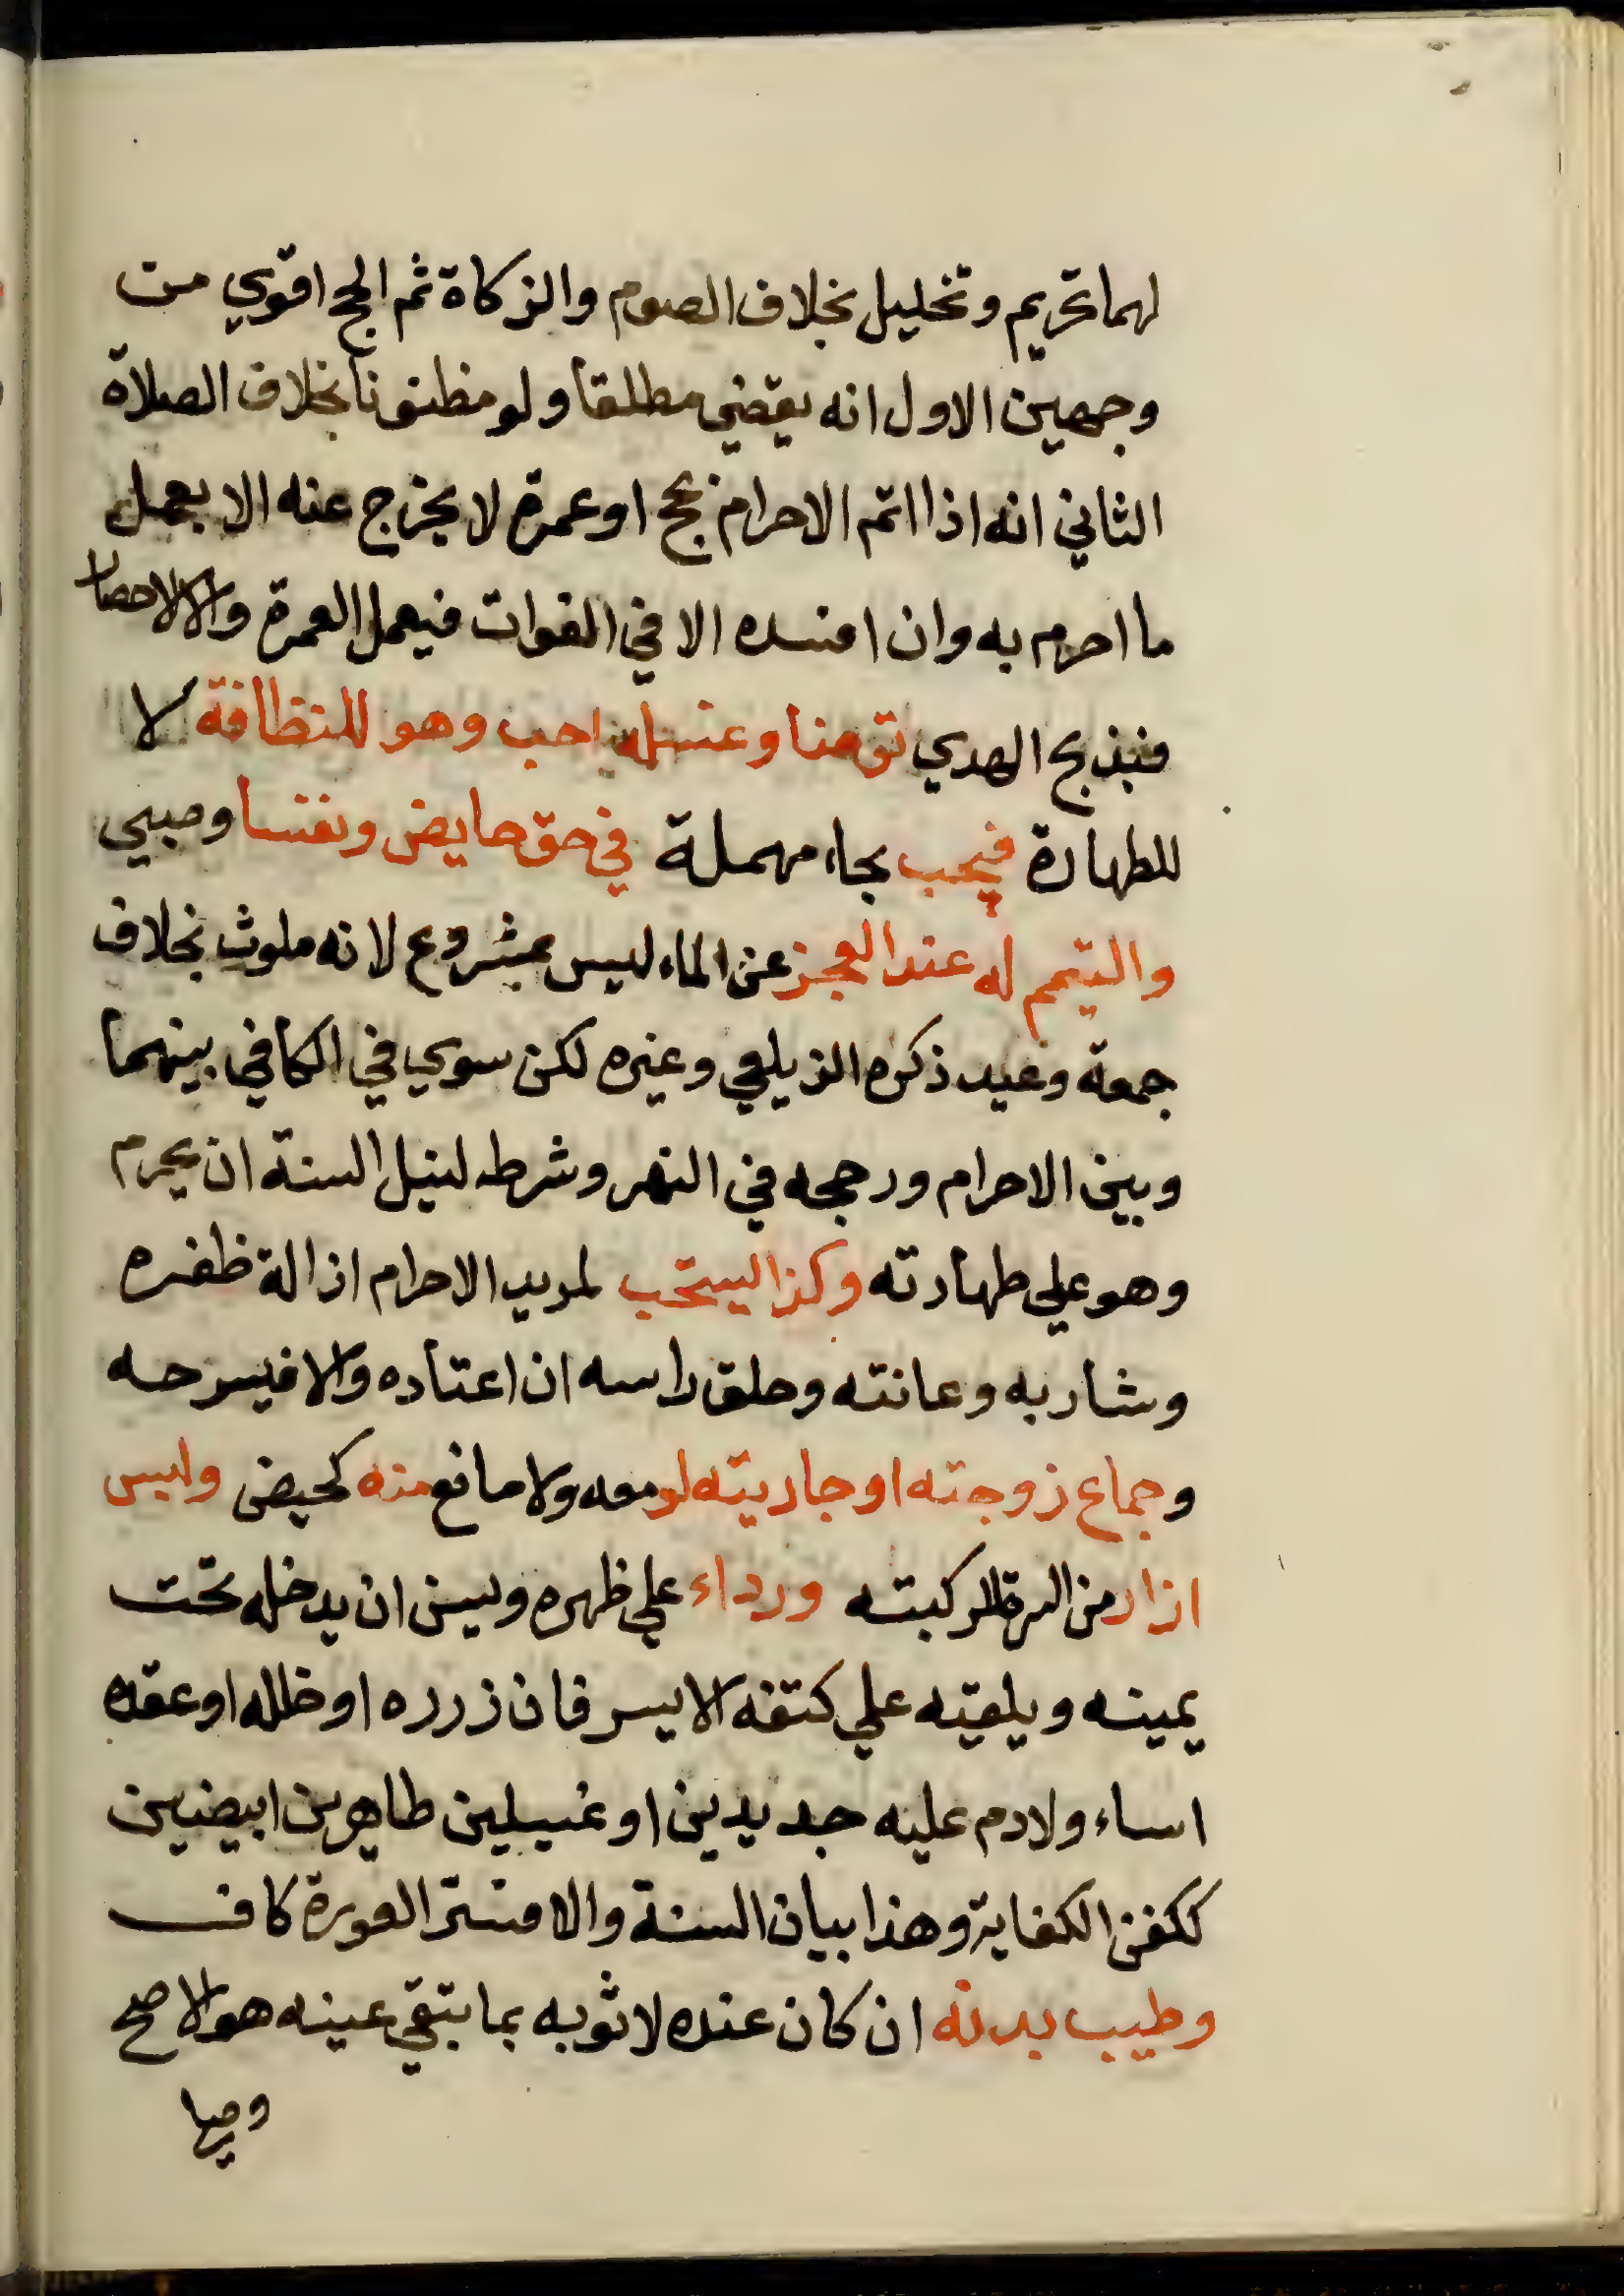 لهما تحريم وتحليل بخلاف الصوم والزكاة ثم الحج اقوي من
وجهين الاول انه يقضي مطلقا ولو مظنونا بخلاف الصلاة
الثاني انه اذا اتم الاحرام بحج او عمرة لا يخرج عنه الا بعمل
ما احرم به وان افسده الا في الفوات فيعمل العمرة والا الاحصار
فبذبح الهدي توضا وغسله احب وهو للنظافة لا
للطهارة فيحب بحاء مهملة في حق حايض ونفسا وصبي
والتيمم له عند العجز عن الماء ليس بمشروع لانه ملوث بخلاف
جمعة وعيد ذكره الزيلعي وغيره لكن سوي في الكافي بينهما
وبين الاحرام ورجحه في النهر وشرطه لنيل السنة ان يحرم
وهو علي طهارته وكذا يستحب لمريد الاحرام ازالة ظفره
وشاربه وعانته وحلق راسه ان اعتاده والا فيسرحه
وجماع زوجته او جاريته لو معه ولا مانع منه كحيض ولبس
ازار من السرة للركبته ورداء علي ظهره ويسن ان يدخله تحت
يمينه ويلقيه علي كتفه الايسر فان زرره او خلله او عقده
اساء ولا دم عليه جديدين او غسيلين طاهرين ابيضين
ككفن الكفاية وهذا بيان السنة والا فستر العورة كاف
وطيب بدنه ان كان عنده لا ثوبه بما تبقي عينه هو الاصح